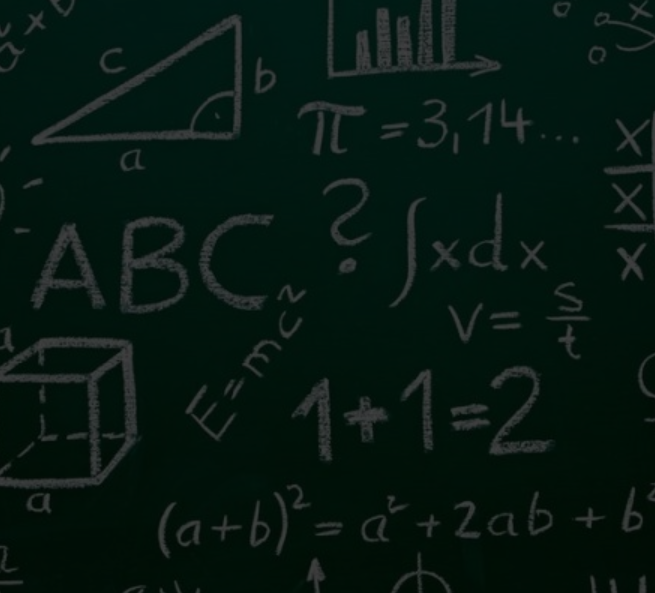 c
b
a
π = 3,14...
x
x
x
ABC
?
∫xdx
v = s/t
E=mc²
1+1=2
a
(a+b)² = a² + 2ab + b²